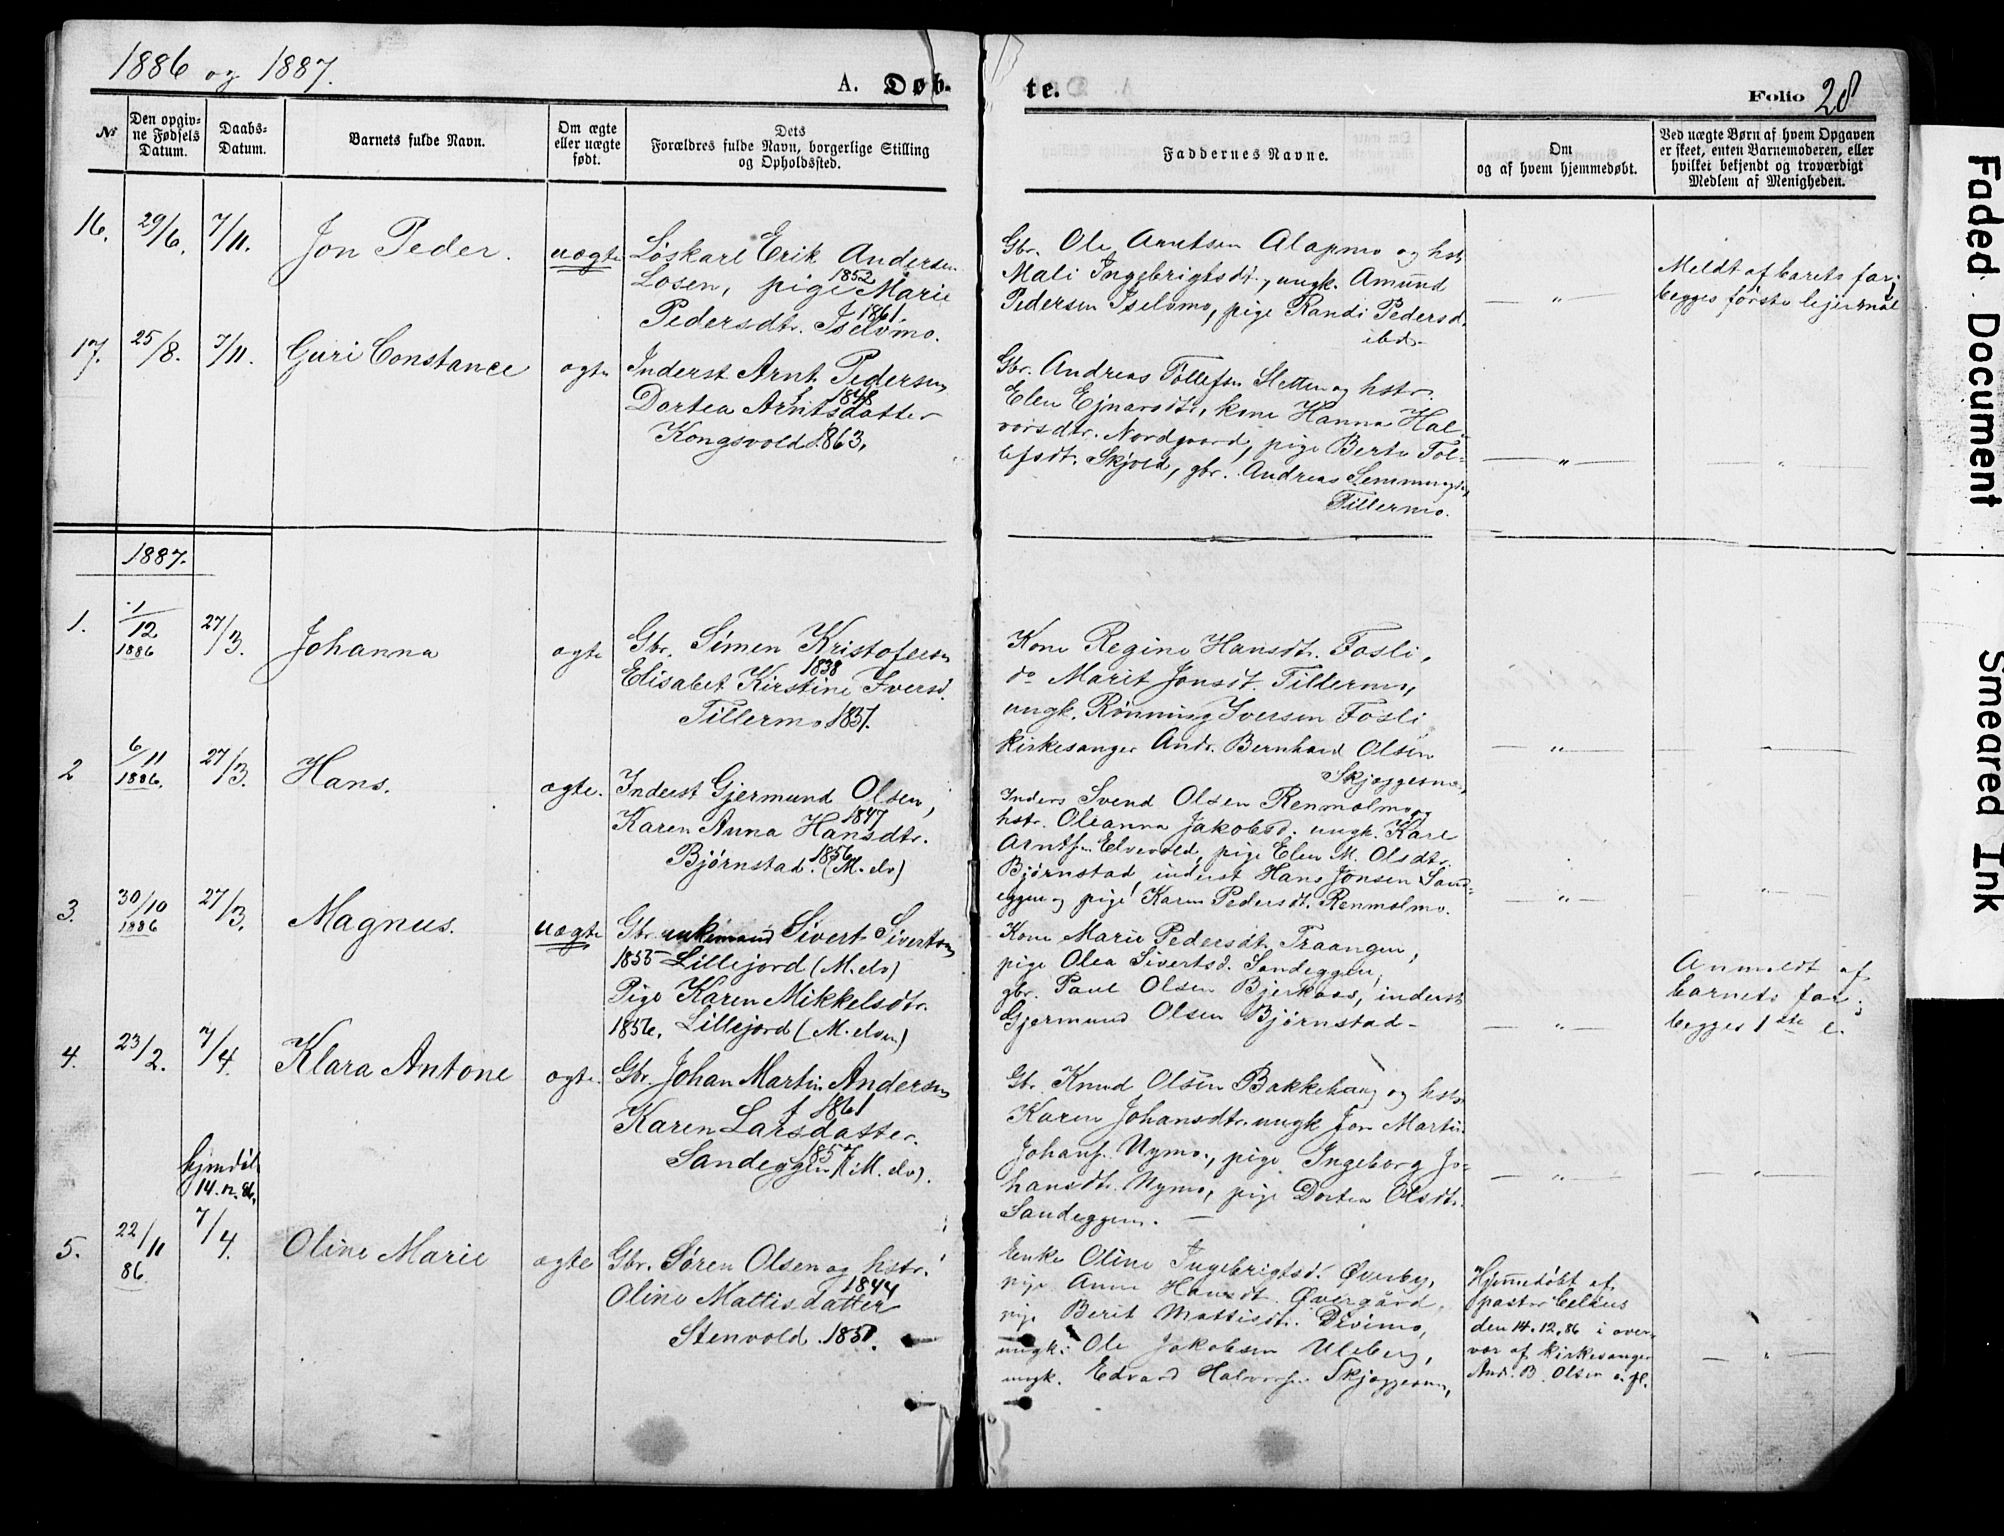 1886 og 1887.
A. Døb-
te.
Folio 28
№
Den opgiv-
ne Fødsels
Datum.
Daabs-
Datum.
Barnets fulde Navn.
Om ægte
eller uægte
født.
Dets
Forældres fulde Navn, borgerlige Stilling
og Opholdssted.
Faddernes Navne.
Om
og af hvem hjemmedøbt.
Ved uægte Børn af hvem Opgaven
er skeet, enten Barnemoderen, eller
hvilket bekjendt og troværdigt
Medlem af Menigheden.
16. 29/6. 7/11. Jon Peder. uægte
Løskarl Erik Andersen
Losen, 1852 pige Marie
Pedersdtr. 1861 Iselvmo.
Gbr. Ole Arntsen Alapmo og hstr
Mali Ingebrigtsdt., ungk. Amund
Pedersen Iselvmo, pige Randi Pedersd.
ibd.
— „ —
Meldt af barets far;
begges første lejermål
17. 25/8. 7/11. Guri Constance ægte
Inderst Arnt Pedersen
1848
Dortea Arntsdatter
Kongsvold 1863.
Gbr. Andreas Tollefsn Sletten og hstr.
Elen Ejnarsdtr, kone Hanna Hal-
vorsdtr. Nordgaard, pige Berte Tol-
lefsdt. Skjold, gbr. Andreas Lemmingsn
Tillermo.
— „ —
1887.
1. 1/12 1886 27/3. Johanna ægte
Gbr. Simen Kristofersn
1838
Elisabet Kirstine Iversd.
Tillermo 1837.
Kone Regine Hansdt. Fosli,
do Marit Jonsdt. Tillermo,
ungk. Rønning Iversen Fosli
kirkesanger Andr. Bernhard Olsen
Skjæggesnes,
— „ —
2 6/11 1886. 27/3. Hans. ægte.
Inderst Gjermund Olsen,
1847
Karen Anna Hansdtr.
Bjørnstad. 1856 (M. elv)
Inders Svend Olsen Renmolmo og
hstr. Oleanna Jakobsd. ungk. Karl
Arntsn Elvevold, pige Elen M. Olsdtr.
Bjørnstad, inderst Hans Jonsen Sand-
eggen og pige Karen Pedersdt. Renmolmo.
— „ —
3. 30/10 1886 27/3. Magnus. uægte
Gbr. enkemand Sivert Sivertsen
1855 Lillejord (M. elv)
Pige Karen Mikkelsdtr.
1856, Lillejord (M. elven)
Kone Marie Pedersdt. Traangen,
pige Olea Sivertsd. Sandeggen,
gbr. Paul Olsen Bjerkaas, inderst
Gjermund Olsen Bjørnstad-
— „ —
Anmeldt af
barnets far;
begges 1ste l.
4. 23/2. 7/4. Klara Antone ægte.
Gbr. Johan Martin Andersen
1861
Karen Larsdatter.
1857
Sandeggen (M. elv).
Gbr. Knud Olsen Bakkehaug og hstr
Karen Johansdtr. ungk Jon Martin
Johansn Nymo, pige Ingeborg Jo-
hansdt. Nymo, pige Dortea Olsdt.
Sandeggen. —
— „ —
hjmdøbt
14. 12. 86.
5. 22/11 86. 7/4. Oline Marie ægte
Gbr. Søren Olsen og hstr.
1844
Oline Mattisdatter
Stenvold 1851.
Enke Oline Ingebrigtsd. Øverby,
pige Anne Hansdt. Øvergård,
pige Berit Mattisdt. Divimo,
ungk. Ole Jakobsen Uleberg,
ungk. Edvard Halvorsn Skjæggesnes,
Hjemmedøbt af
pastor Celius
den 14.12.86 i over-
vær af kirkesanger
And. B. Olsen o. fl.
— „ —
Faded Document
Smeared Ink